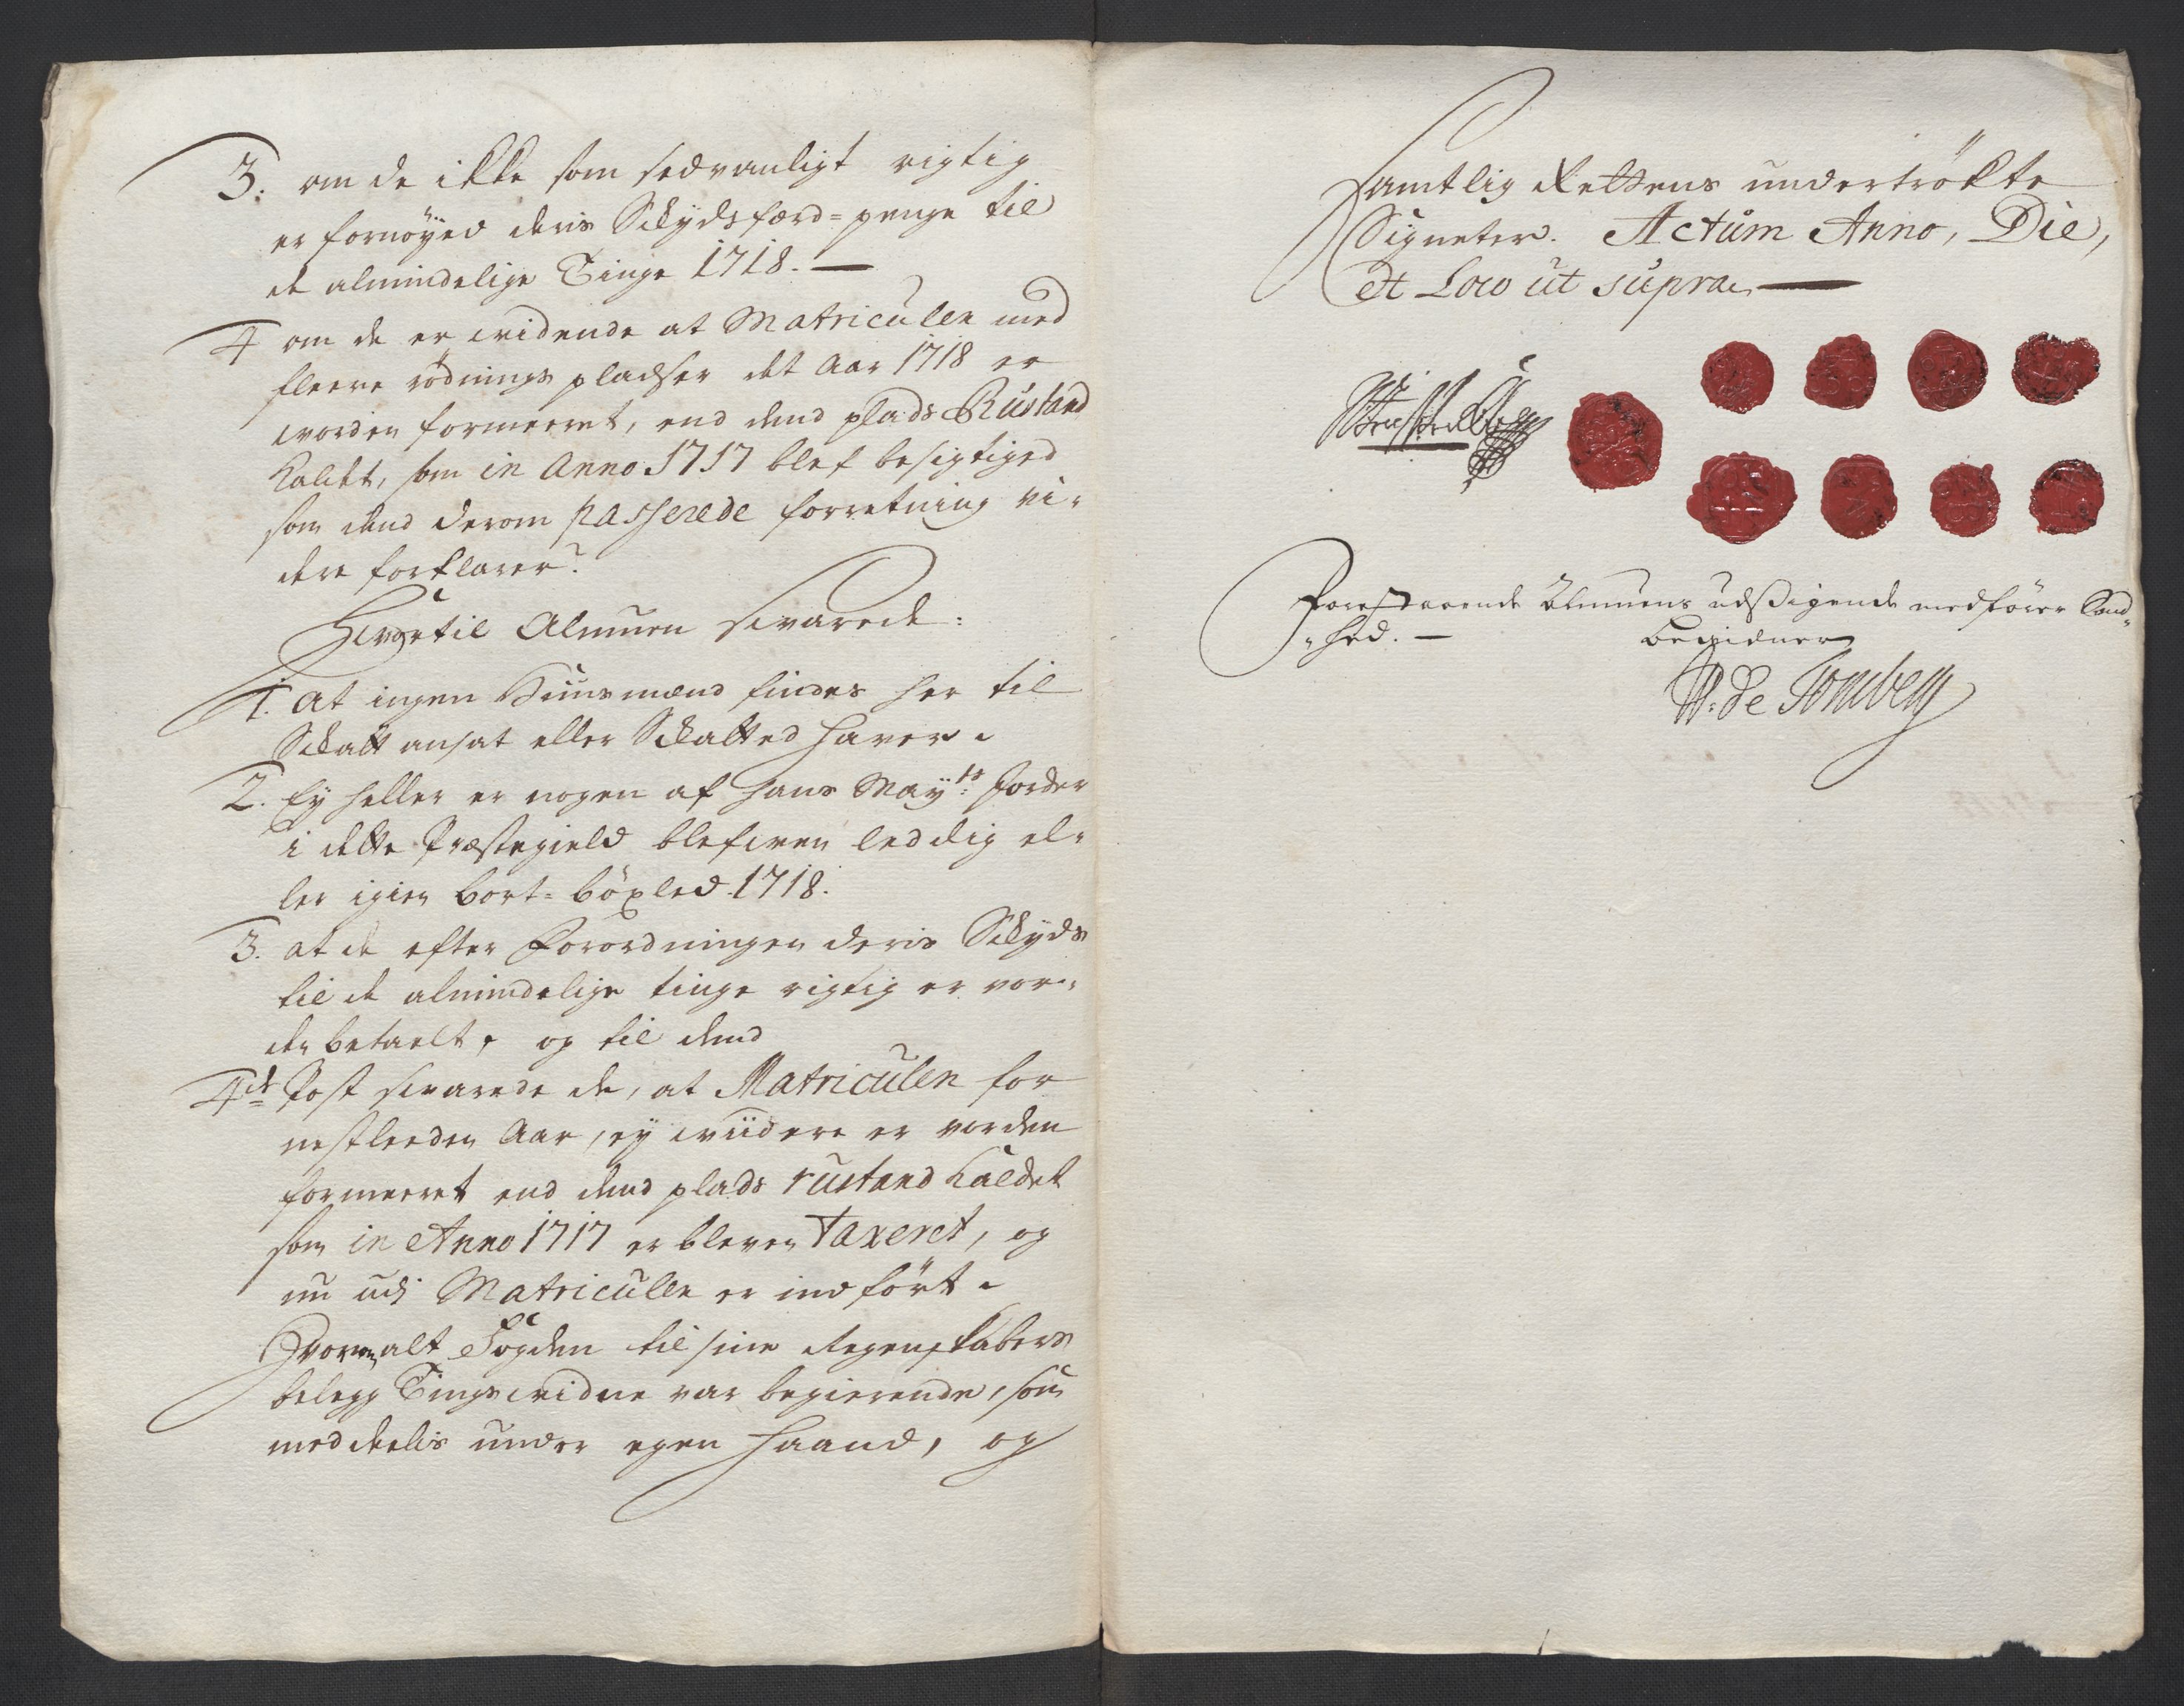 3. om de ikke som sedvanligt rigtig
er fornöyed deris Schydsferd-penge til
de almindelige Tinge 1718.
4 om de er vidende at Matriculen med
fleere rödnings pladser det Aar 1718 er
worden formeeret, end dend plads Rustand
Kaldet, som in Anno 1717 blef besigtiged
som dend derom passerede forretning vi-
dere forklarer?
Hvortil Almuen svarede:
1. At ingen Huusmænd findes her til
Schatt ansat eller Schatted haver.
2. Ey heller er nogen af hans Mayts: Jorder
i dette Præstegield blefwen leddig el-
ler igien bort-böxled 1718.
3. at de efter Forordningen deris Schyds
til de almindelige tinge rigtig er vor-
den betaelt, og til dend
4de Post svarede de, at Matriculen for
nestleeden Aar, ey wiidere er vorden
formeeret end dend plads rustand Kaldet
som in Anno 1717 er bleven taxeret, og
nu udj Matriculen er indfört.
Hvorom alt Fogden til sine Regenskabers
belegg Tingswidne var begierende, som
meddeelis under egen Haand, og
Samtlig Rettens undertrökte
Signeter. Actum Anno, Die,
et Loco ut supra
Forestaaende Almuens udsigende medförer Sand-
-hed. — bevidner
P. de Tonsberg